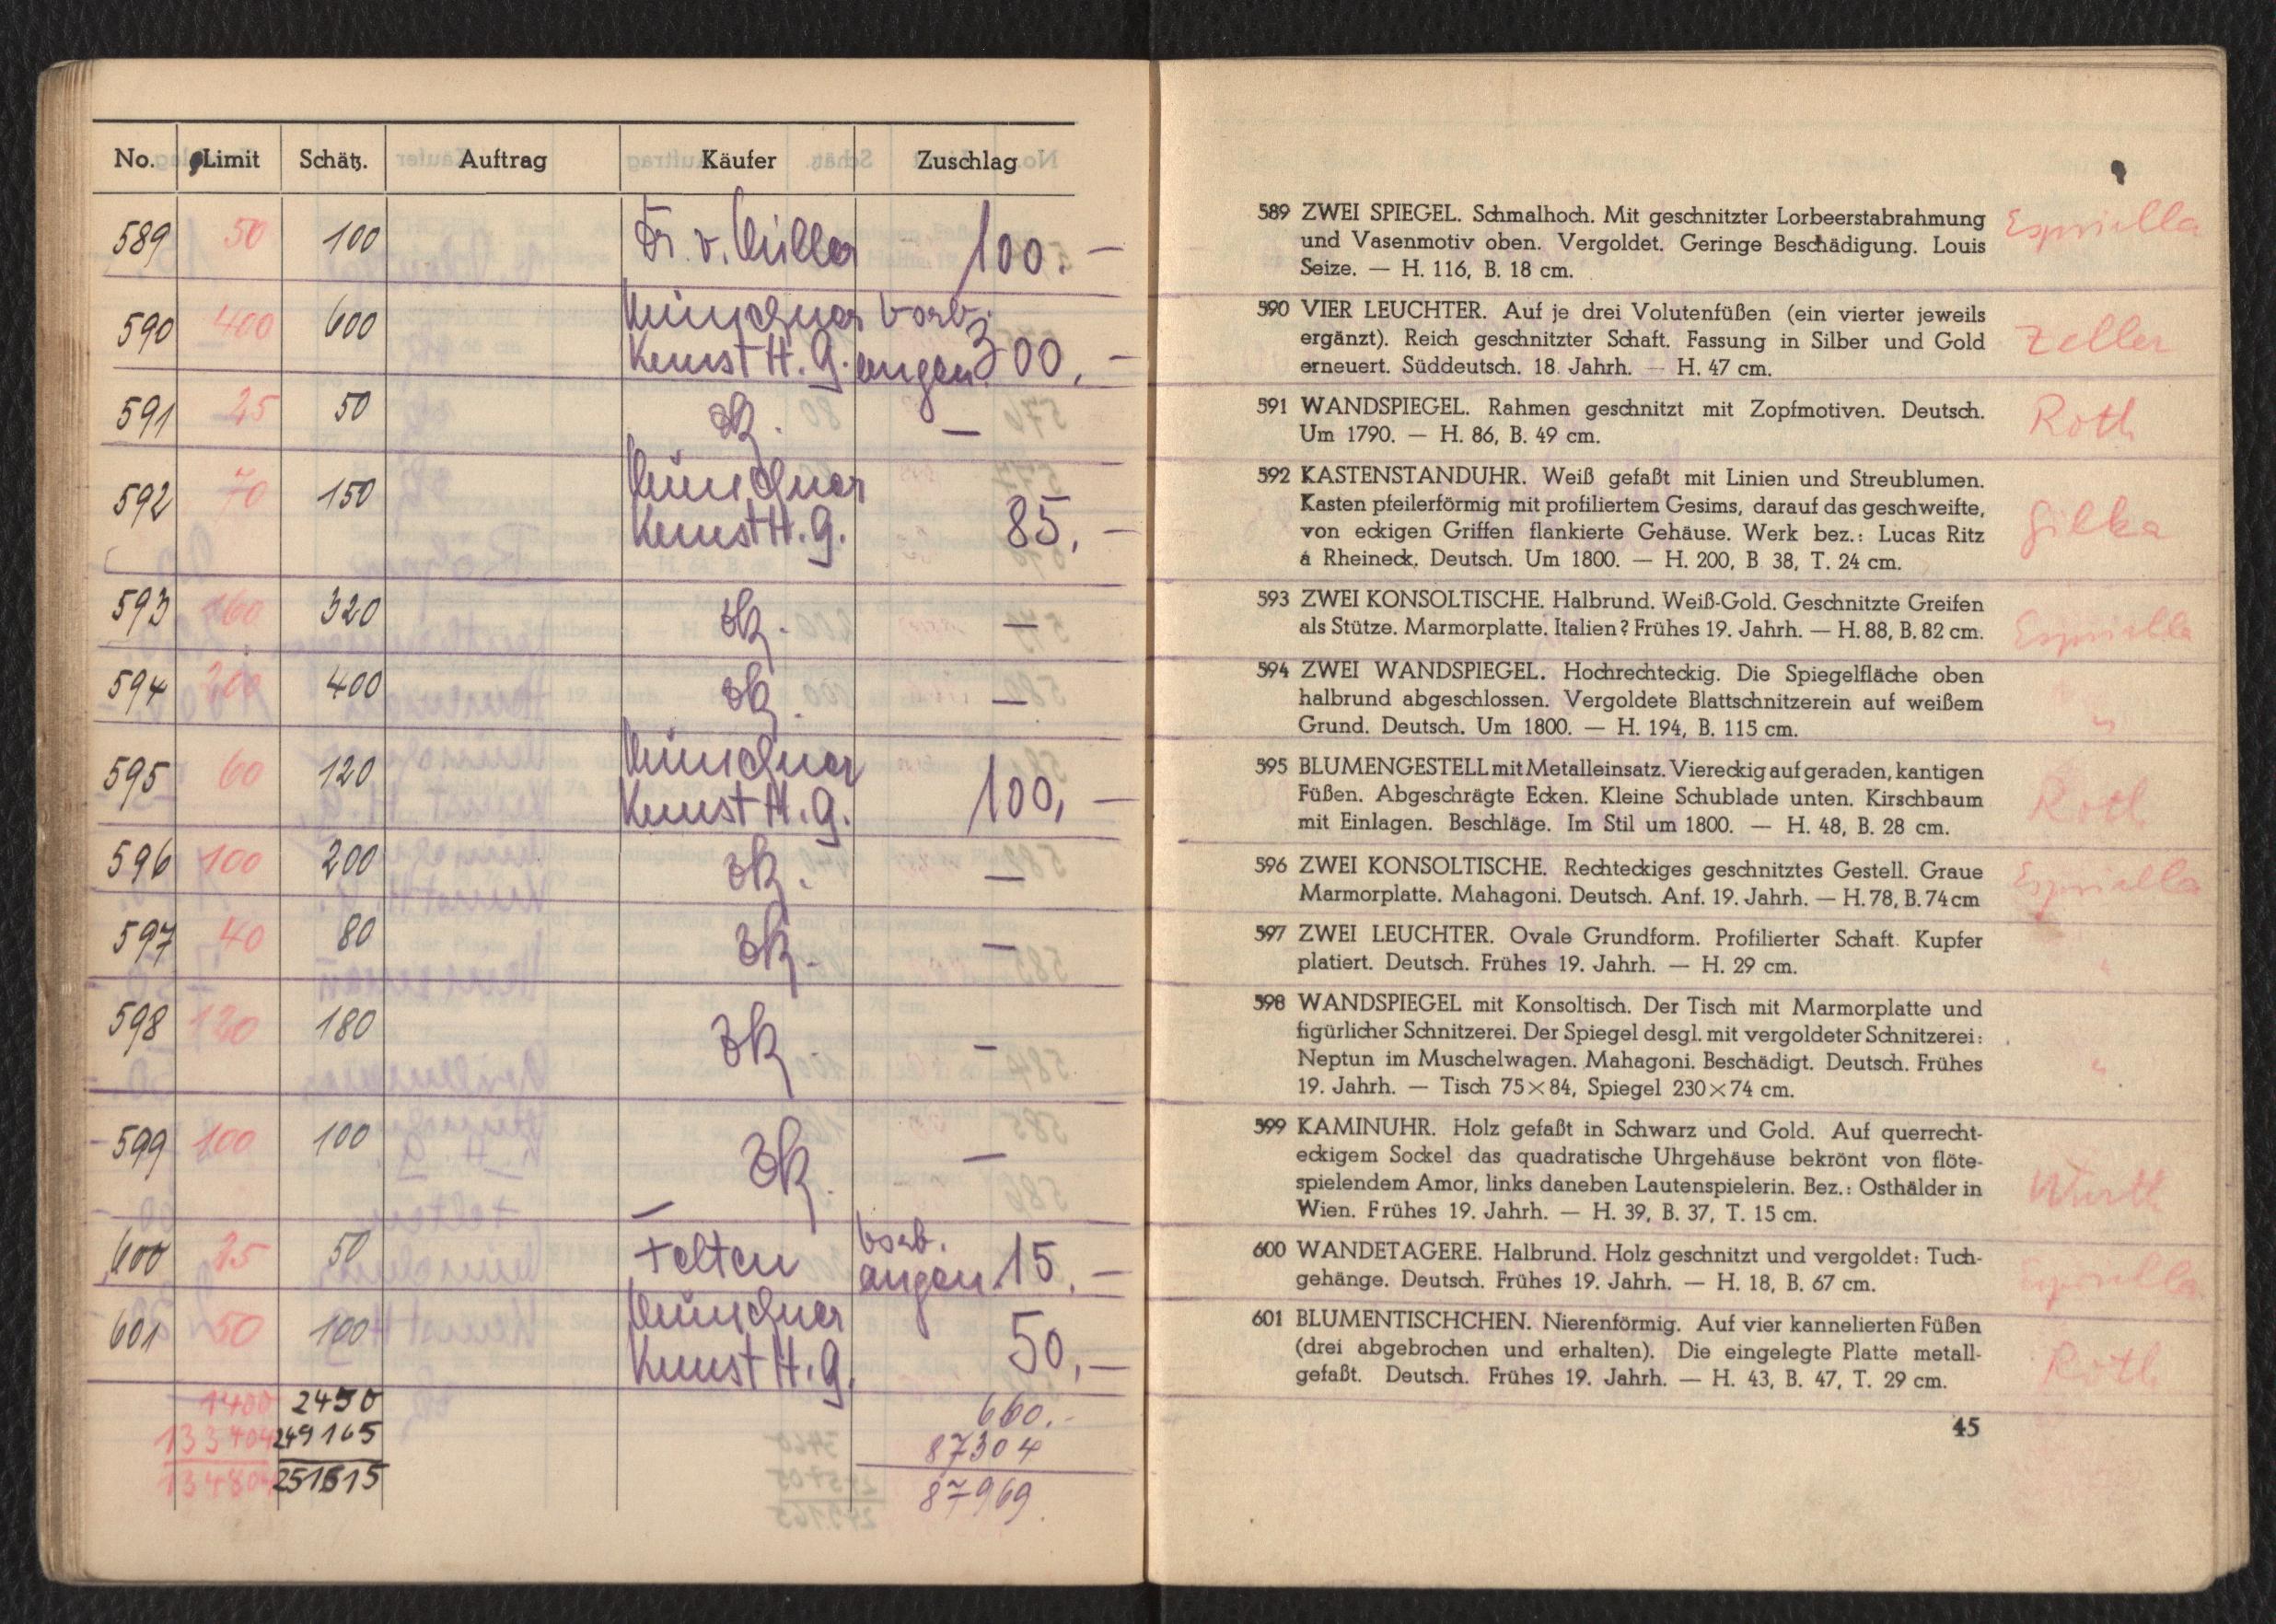 No. Limit Schätz. Auftrag Käufer Zuschlag
589 50 100 Fr. v. Miller 100.—
590 400 600 Münchner vorb.
Kunst H. G. angen. 300,—
591 25 50 zk. —
592 70 150 Münchner
Kunst H. G. 85,—
593 160 320 zk. —
594 200 400 zk. —
595 60 120 Münchner
Kunst H. G. 100,—
596 100 200 zk. —
597 40 80 zk. —
598 120 180 zk —
599 100 100 zk. —
600 25 50 Felten vorb.
angen. 15.—
601 50 100 Münchner
Kunst H. G. 50,—
1400 2450 660.-
133404 249165 87304
134804 251615 87969
589 ZWEI SPIEGEL. Schmalhoch. Mit geschnitzter Lorbeerstabrahmung Espriella
und Vasenmotiv oben. Vergoldet. Geringe Beschädigung. Louis
Seize. — H. 116, B. 18 cm.
590 VIER LEUCHTER. Auf je drei Volutenfüßen (ein vierter jeweils
ergänzt). Reich geschnitzter Schaft. Fassung in Silber und Gold Zeller
erneuert. Süddeutsch. 18. Jahrh. — H. 47 cm.
591 WANDSPIEGEL. Rahmen geschnitzt mit Zopfmotiven. Deutsch. Roth
Um 1790. — H. 86, B. 49 cm.
592 KASTENSTANDUHR. Weiß gefaßt mit Linien und Streublumen.
Kasten pfeilerförmig mit profiliertem Gesims, darauf das geschweifte, Gilka
von eckigen Griffen flankierte Gehäuse. Werk bez.: Lucas Ritz
á Rheineck. Deutsch. Um 1800. — H. 200, B 38, T. 24 cm.
593 ZWEI KONSOLTISCHE. Halbrund. Weiß-Gold. Geschnitzte Greifen
als Stütze. Marmorplatte. Italien? Frühes 19. Jahrh. — H. 88, B. 82 cm. Espriella
594 ZWEI WANDSPIEGEL. Hochrechteckig. Die Spiegelfläche oben
halbrund abgeschlossen. Vergoldete Blattschnitzerein auf weißem
Grund. Deutsch. Um 1800. — H. 194, B. 115 cm. "
595 BLUMENGESTELL mit Metalleinsatz. Viereckig auf geraden, kantigen
Füßen. Abgeschrägte Ecken. Kleine Schublade unten. Kirschbaum Roth
mit Einlagen. Beschläge. Im Stil um 1800. — H. 48, B. 28 cm.
596 ZWEI KONSOLTISCHE. Rechteckiges geschnitztes Gestell. Graue Espriella
Marmorplatte. Mahagoni. Deutsch. Anf. 19. Jahrh. — H. 78, B. 74 cm
597 ZWEI LEUCHTER. Ovale Grundform. Profilierter Schaft. Kupfer
platiert. Deutsch. Frühes 19. Jahrh. — H. 29 cm. "
598 WANDSPIEGEL mit Konsoltisch. Der Tisch mit Marmorplatte und
figürlicher Schnitzerei. Der Spiegel desgl. mit vergoldeter Schnitzerei:
Neptun im Muschelwagen. Mahagoni. Beschädigt. Deutsch. Frühes "
19. Jahrh. — Tisch 75×84, Spiegel 230×74 cm.
599 KAMINUHR. Holz gefaßt in Schwarz und Gold. Auf querrecht-
eckigem Sockel das quadratische Uhrgehäuse bekrönt von flöte-
spielendem Amor, links daneben Lautenspielerin. Bez.: Osthälder in
Wien. Frühes 19. Jahrh. — H. 39, B. 37, T. 15 cm.
600 WANDETAGERE. Halbrund. Holz geschnitzt und vergoldet: Tuch-
gehänge. Deutsch. Frühes 19. Jahrh. — H. 18, B. 67 cm. Espriella
601 BLUMENTISCHCHEN. Nierenförmig. Auf vier kannelierten Füßen
(drei abgebrochen und erhalten). Die eingelegte Platte metall-
gefaßt. Deutsch. Frühes 19. Jahrh. — H. 43, B. 47, T. 29 cm. Roth
45